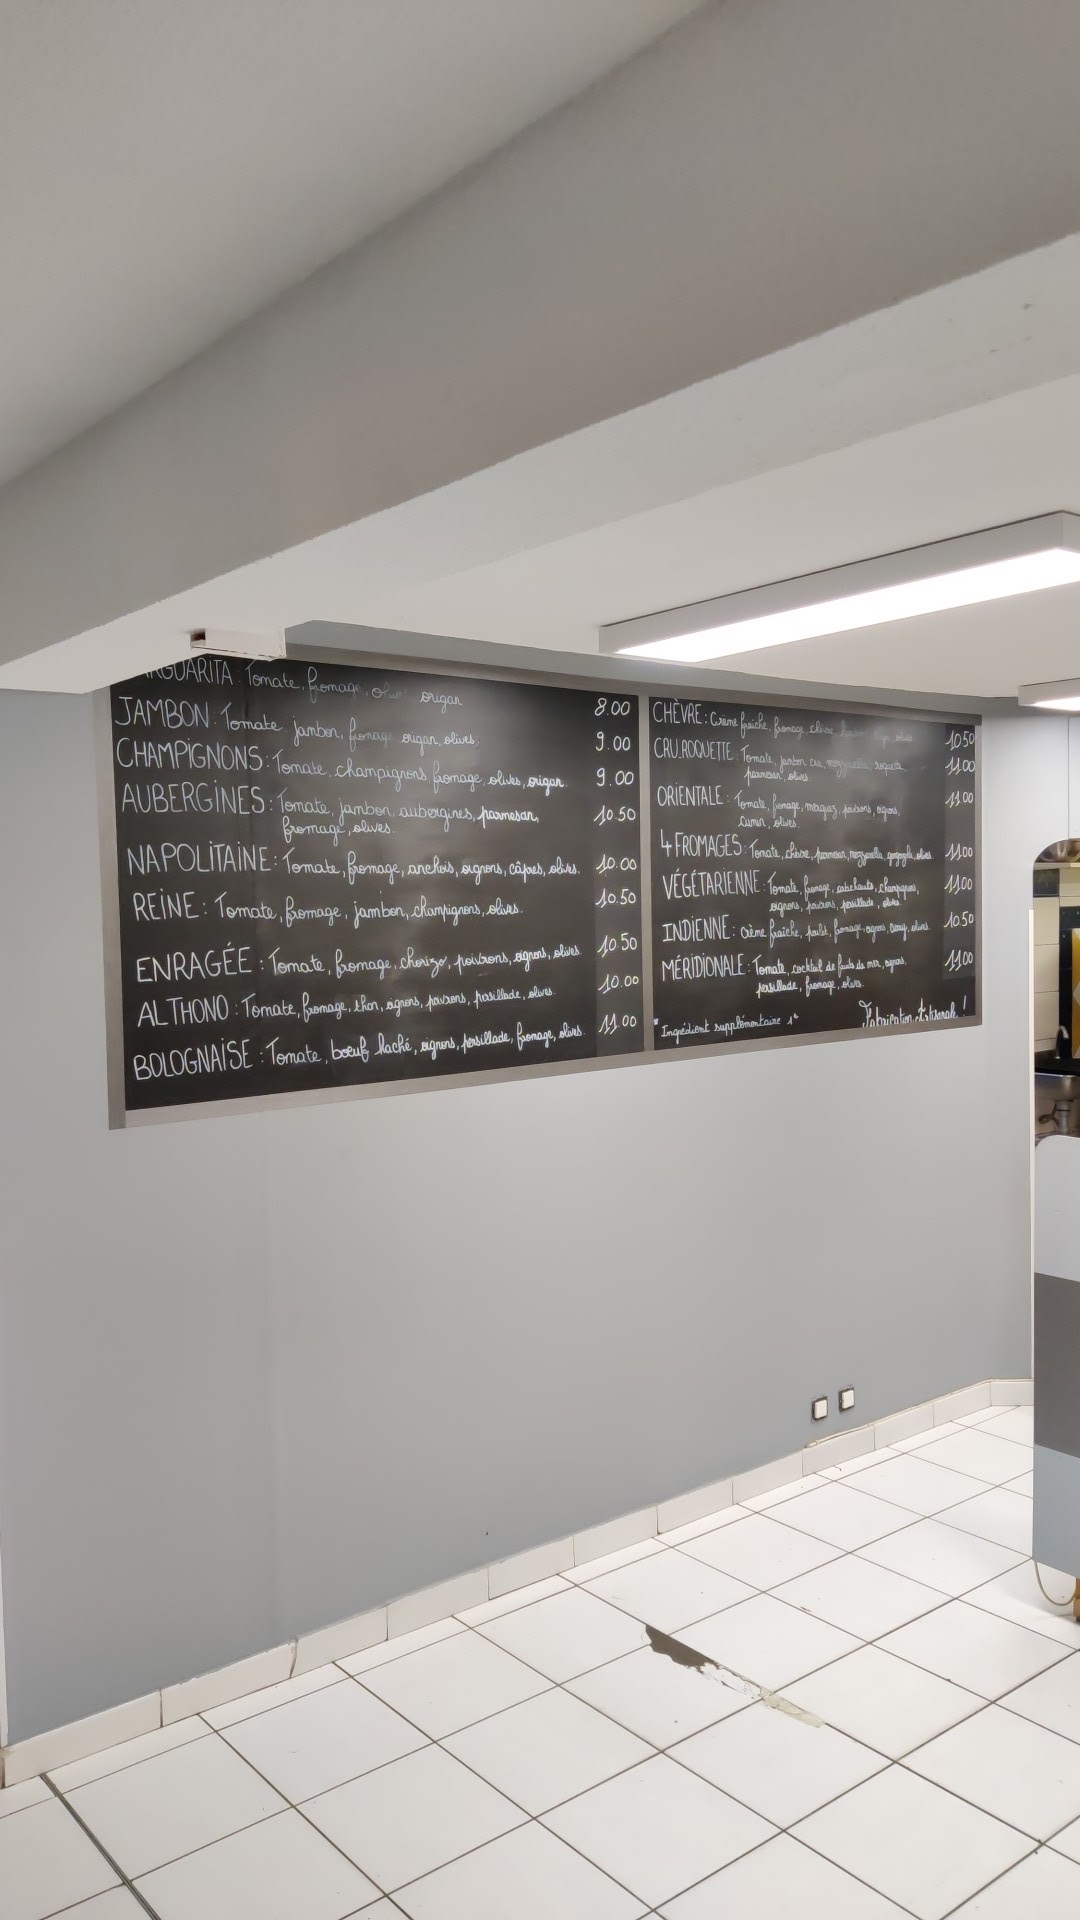 ARGUARITA : Tomate, fromage, origan 8.00
JAMBON : Tomate jambon, fromage origan, olives, 9.00
CHAMPIGNONS : Tomate, champignons, fromage, olives, origan. 9.00
AUBERGINES : Tomate, jambon, aubergines, parmesan, 10.50
fromage, olives.
NAPOLITAINE : Tomate, fromage, anchois, oignons, câpres, olives. 10.00
REINE : Tomate, fromage, jambon, champignons, olives. 10.50
ENRAGÉE : Tomate, fromage, chorizo, poivrons, oignons, olives. 10.50
ALTHONO : Tomate, fromage, thon, oignons, poivrons, persillade, olives. 10.00
BOLOGNAISE : Tomate, bœuf haché, oignons, persillade, fromage, olives. 11.00
CHÈVRE : Crème fraîche, fromage, chèvre olives 10.50
CRU.ROQUETTE : Tomate, jambon cru, mozzarella, roquette, 11.00
parmesan, olives
ORIENTALE : Tomate, fromage, merguez, poivrons, oignons, 11.00
cumin, olives.
4 FROMAGES : Tomate, chèvre, parmesan, mozzarella, gorgonzola, olives. 11.00
VÉGÉTARIENNE : Tomate, fromage, artichauts, champignons, 11.00
oignons, poivrons, persillade, olives
INDIENNE : crème fraîche, poulet, fromage, oignons, curry, olives. 10.50
MÉRIDIONALE : Tomate, cocktail de fruits de mer, oignons, 11.00
persillade, fromage, olives.
* Ingrédient supplémentaire 1€
Fabrication Artisanale !